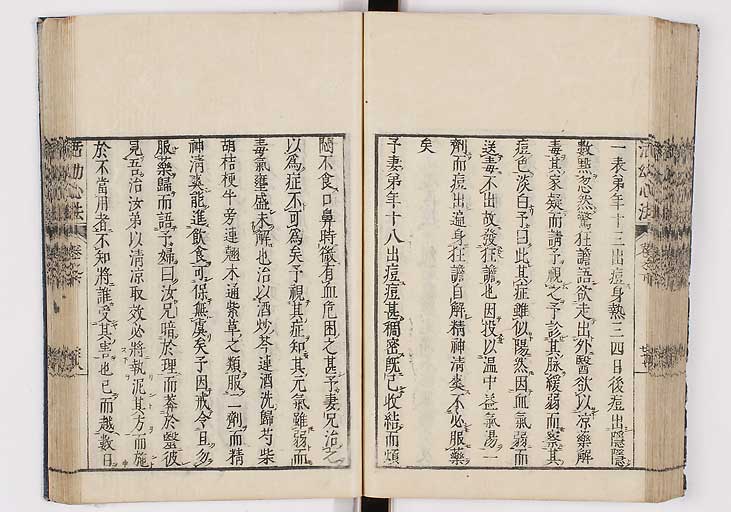 一表弟年十三出痘身熱三四日後痘出隱隱
數點忽然驚狂譫語欲走出外醫欲以凉藥解
毒其家疑而請予視之予診其脉緩弱而察其
痘色淡白予曰此其症雖似陽然因血氣弱而
送毒不出故發狂譫也因投以温中益氣湯一
劑而痘出遍身狂譫自解精神清爽不必服藥
矣
予妻弟年十八出痘痘甚稠密既已收結而煩
悶不食口鼻時微有血危困之甚予妻兄治之
以為症不可為矣予視其症知其元氣雖弱而
毒氣壅盛未解也治以酒炒芩連酒洗歸芍柴
胡桔梗牛旁連翹木通紫草之類服一劑而精
神清爽能進飲食可保無虞矣予因戒令且勿
服藥歸而語予婦曰汝兄暗於理而莽於醫彼
見吾治汝弟以清凉取效必將執泥其方而施
於不當用者不知將誰受其害也已而越數日
活幼心法